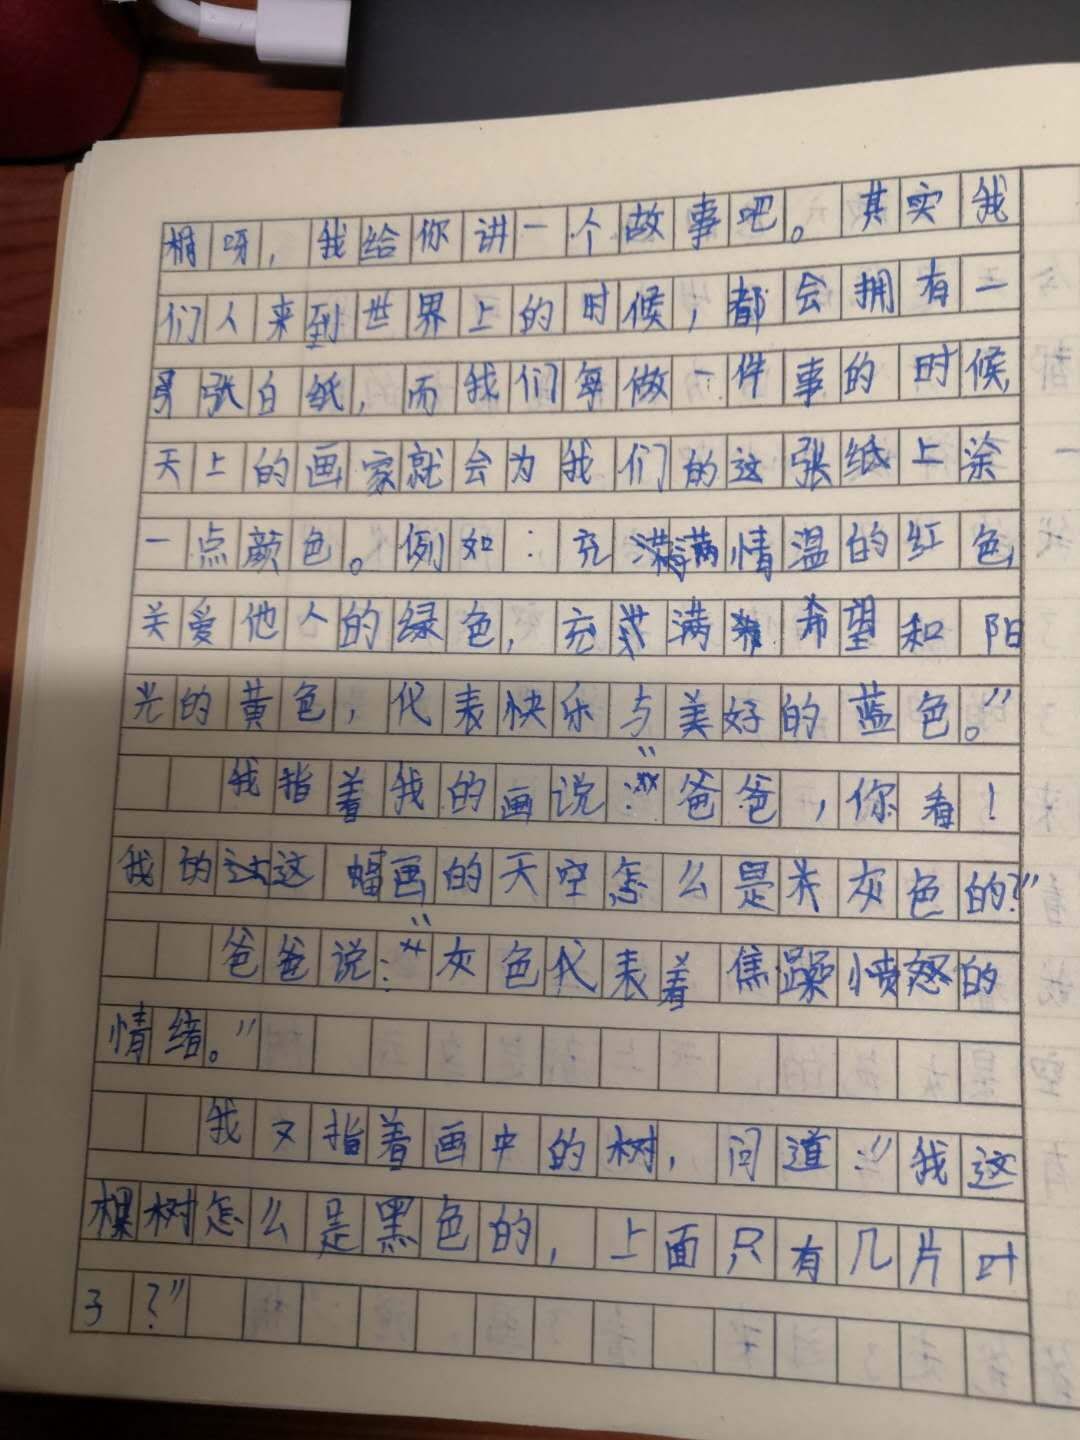 桐呀，我给你讲一个故事吧。其实我
们人来到世界上的时候，都会拥有一
张白纸，而我们每做一件事的时候，
天上的画家就会为我们的这张纸上涂
一点颜色。例如：充满温情的红色，
关爱他人的绿色，充满希望和阳
光的黄色，代表快乐与美好的蓝色。”
我指着我的画说：“爸爸，你看！
我的这幅画的天空怎么是灰色的？”
爸爸说：“灰色代表着焦躁愤怒的
情绪。”
我又指着画中的树，问道：“我这
棵树怎么是黑色的，上面只有几片叶
子？”